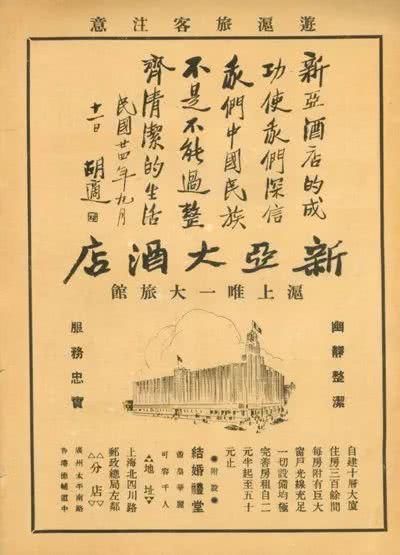 遊滬旅客注意
新亞酒店的成
功使我們深信
我們中國民族
不是不能過整
齊清潔的生活
民國廿四年九月
十一日
胡適
新亞大酒店
滬上唯一大旅館
幽靜整潔
服務忠實
自建十層大廈
住房三百餘間
每房附有巨大
窗戶光線充足
一切設備均極
完善房租自二
元半起至五十
元止
附設
結婚禮堂
皇華麗
可容千人
地址
上海北四川路
郵政總局左鄰
分店
廣州太平南路
香港德輔道中